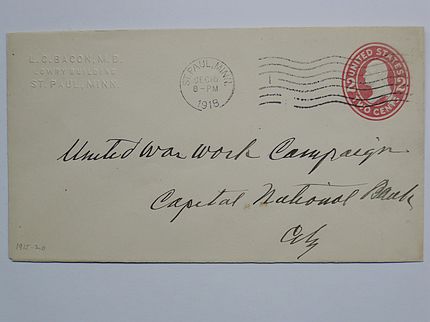 L. C. BACON, M. D.
LOWRY BUILDING
ST. PAUL, MINN.
ST. PAUL, MINN.
DEC 16
8-PM
1918
UNITED STATES
2 2
TWO CENTS
United War Work Campaign
Capital National Bank
City